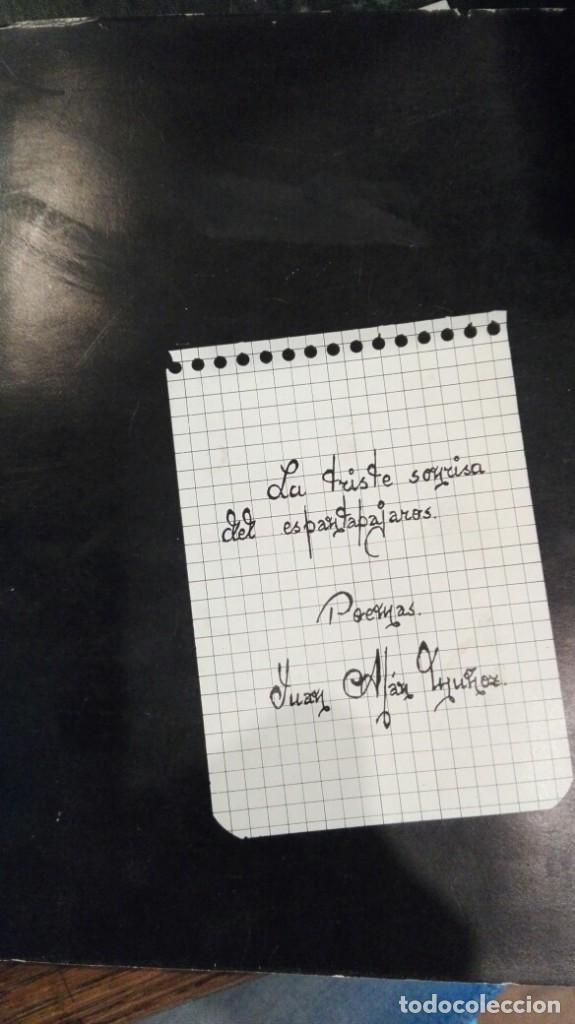 La triste sonrisa
del espantapajaros.
Poemas.
Juan Afán Muñoz.
todocoleccion